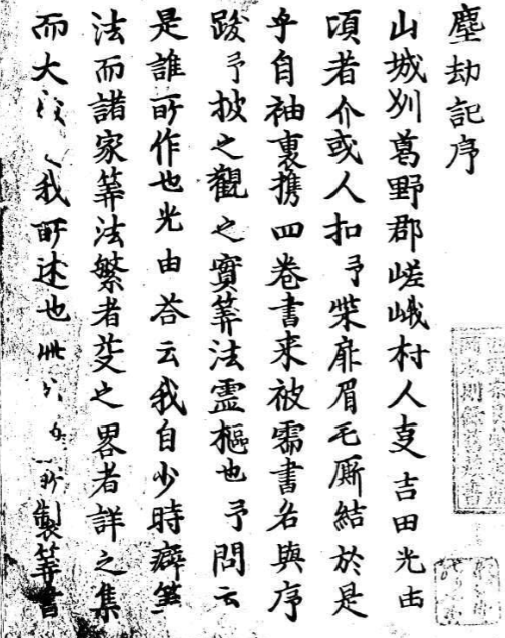 塵劫記序
山城州葛野郡嵯峨村人叓吉田光由
頃者介或人扣予柴扉眉毛厮結於是
乎自袖裏携四巻書来被需書名與序
跋予披之觀之實筭法霊樞也予問云
是誰所作也光由荅云我自少時癖筭
法而諸家筭法繁者芟之畧者詳之集
而大我所述也製筭書